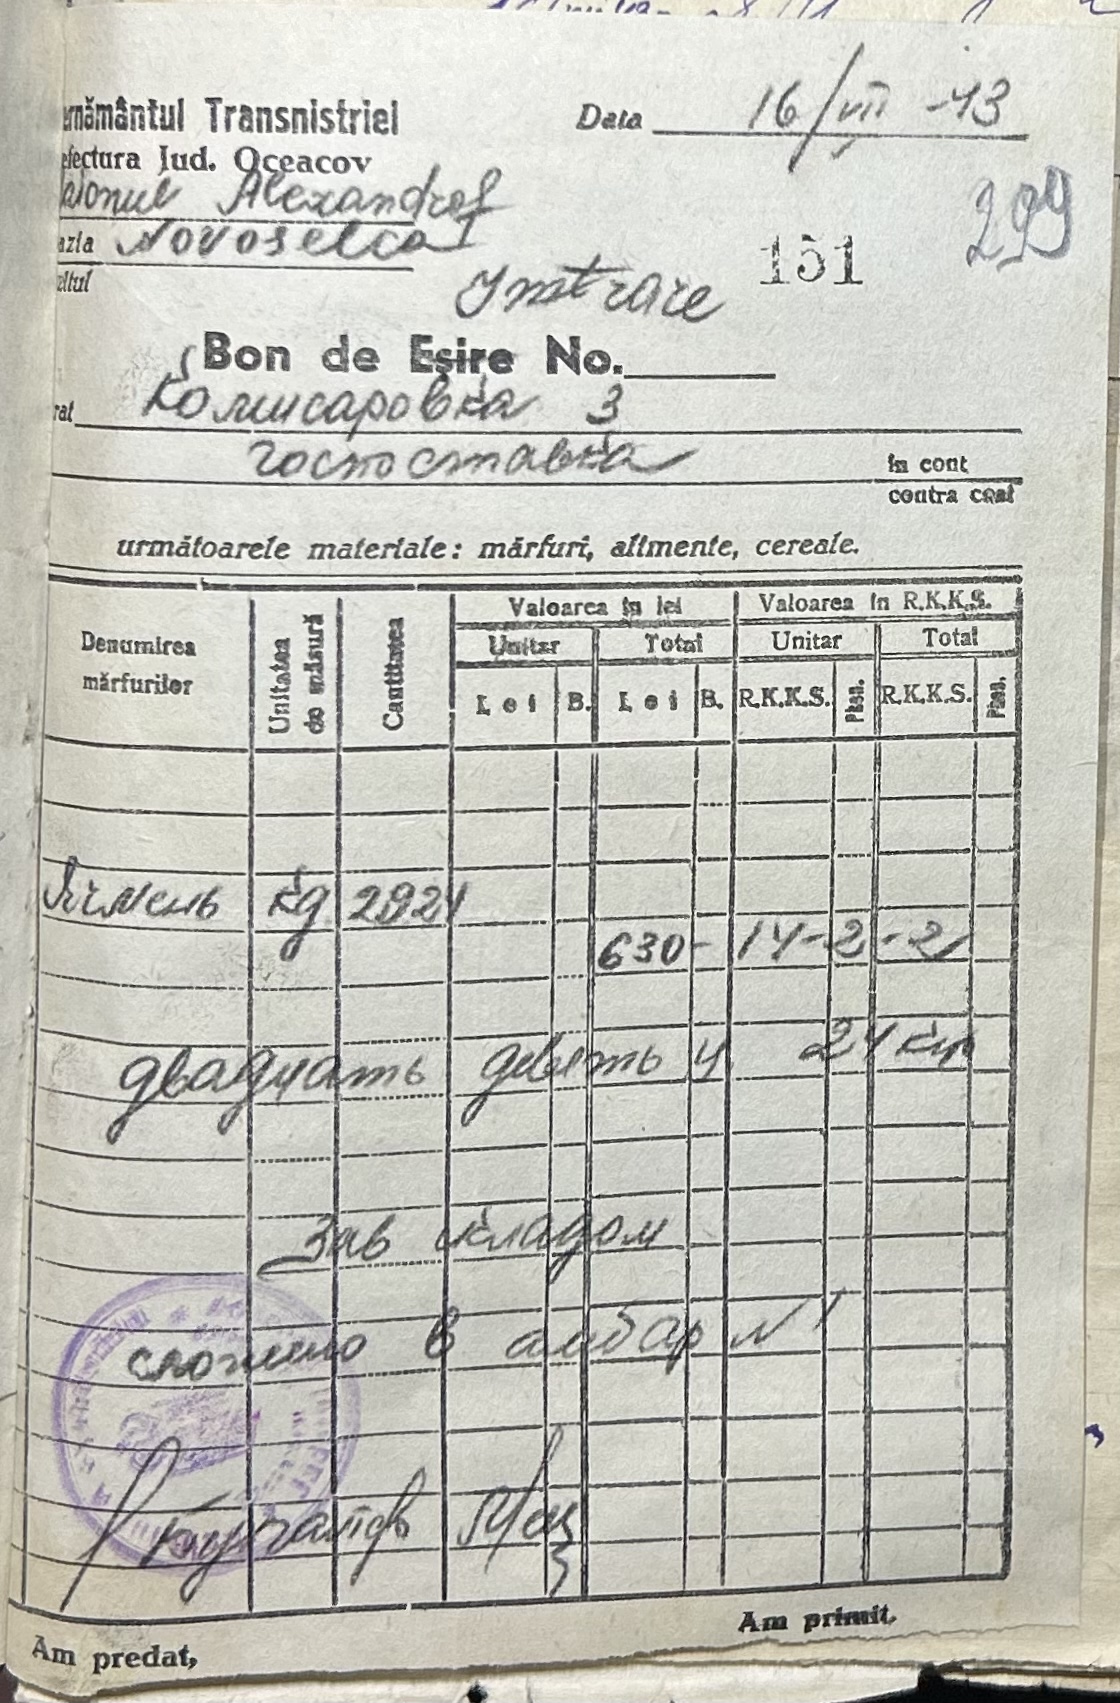 ernământul Transnistriei
Data 16/VII -43
efectura Jud. Oceacov
aionul Alexandrof
azia Novoselca I
299
151
ltul
Intrare
Bon de Eșire No.
rat Комисаровка 3
госпоставка în cont
contra cost
următoarele materiale: mărfuri, alimente, cereale.
Denumirea mărfurilor Unitatea de măsură Cantitatea Valoarea în lei Valoarea în R.K.K.S.
Unitar Total Unitar Total
Lei B. Lei B. R.K.K.S. Pfen. R.K.K.S. Pfen.
Ячмень кg 2924
630- 14-2-2
двадцать девять ц 24 кгр
Зав складом
сложено в амбар N 1
Am primit,
Am predat,